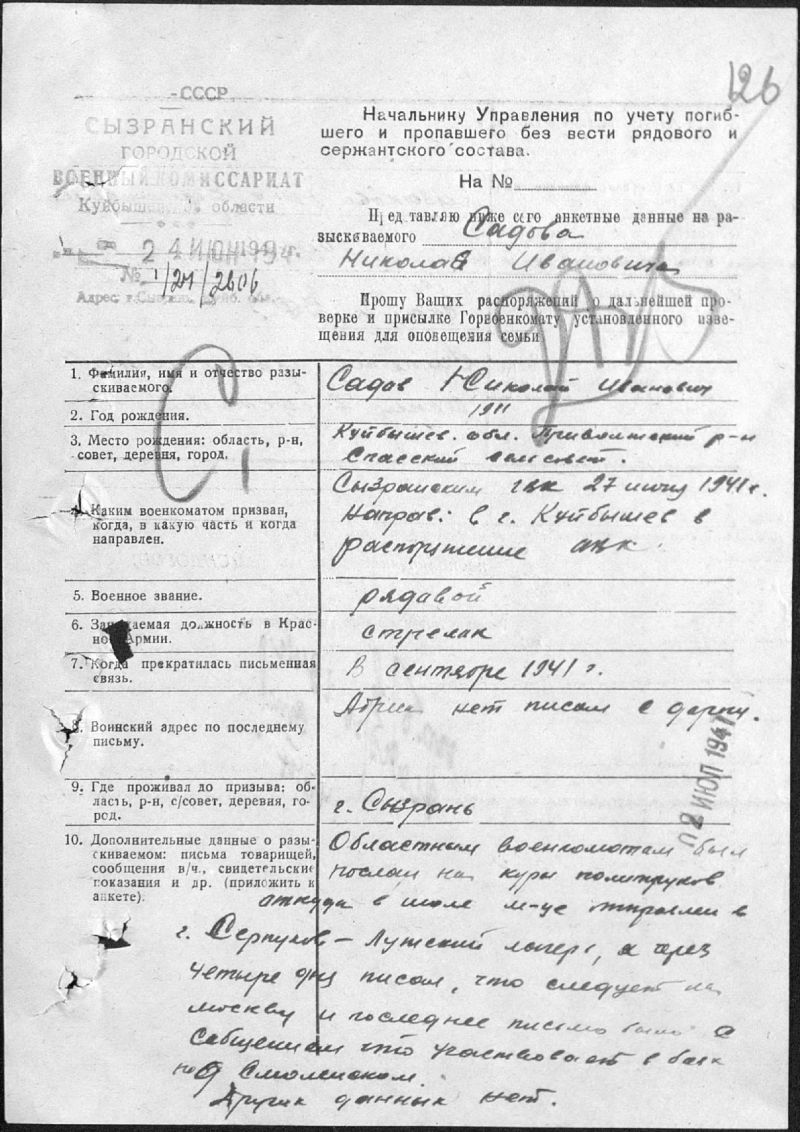 126
-СССР
СЫЗРАНСКИЙ
ГОРОДСКОЙ
ВОЕННЫЙ КОМИССАРИАТ
Куйбышев области
24 ИЮН 194 г.
№ 1/21/2606
Адрес г.
Начальнику Управления по учету погиб-
шего и пропавшего без вести рядового и
сержантского состава.
На №
Представляю ниже сего анкетные данные на ра-
зыскиваемого Садова
Николая Ивановича
Прошу Ваших распоряжений о дальнейшей про-
верке и присылке Горвоенкомату установленного изве-
щения для оповещения семьи
1. Фамилия, имя и отчество разы-
скиваемого.
Садов Николай Иванович
2. Год рождения.
1911
3. Место рождения: область, р-н,
совет, деревня, город.
Куйбышев. обл. Приволжский р-н
Спасский сельсовет.
4. Каким военкоматом призван,
когда, в какую часть и когда
направлен.
Сызранским гвк 27 июня 1941 г.
Направ: в г. Куйбышев в
распоряжение овк.
5. Военное звание.
рядавой
6. Занимаемая должность в Крас-
ной Армии.
стрелок
7. Когда прекратилась письменная
связь.
В сентябре 1941 г.
8. Воинский адрес по последнему
письму.
Адреса нет писал с дороги.
02 ИЮЛ 194
9. Где проживал до призыва: об-
ласть, р-н, с/совет, деревня, го-
род.
г. Сызрань
10. Дополнительные данные о разы-
скиваемом: письма товарищей,
сообщения в/ч., свидетельские
показания и др. (приложить к
анкете).
Областным военкоматам был
послан на курсы политруков
откуда в июле м-це отправлен в
г. Серпухов - Лужский лагерь, а через
четыре дня писал, что следует на
москву и последнее письмо было с
сообщением что участвовает в боях
под Смоленском.
Других данных нет.